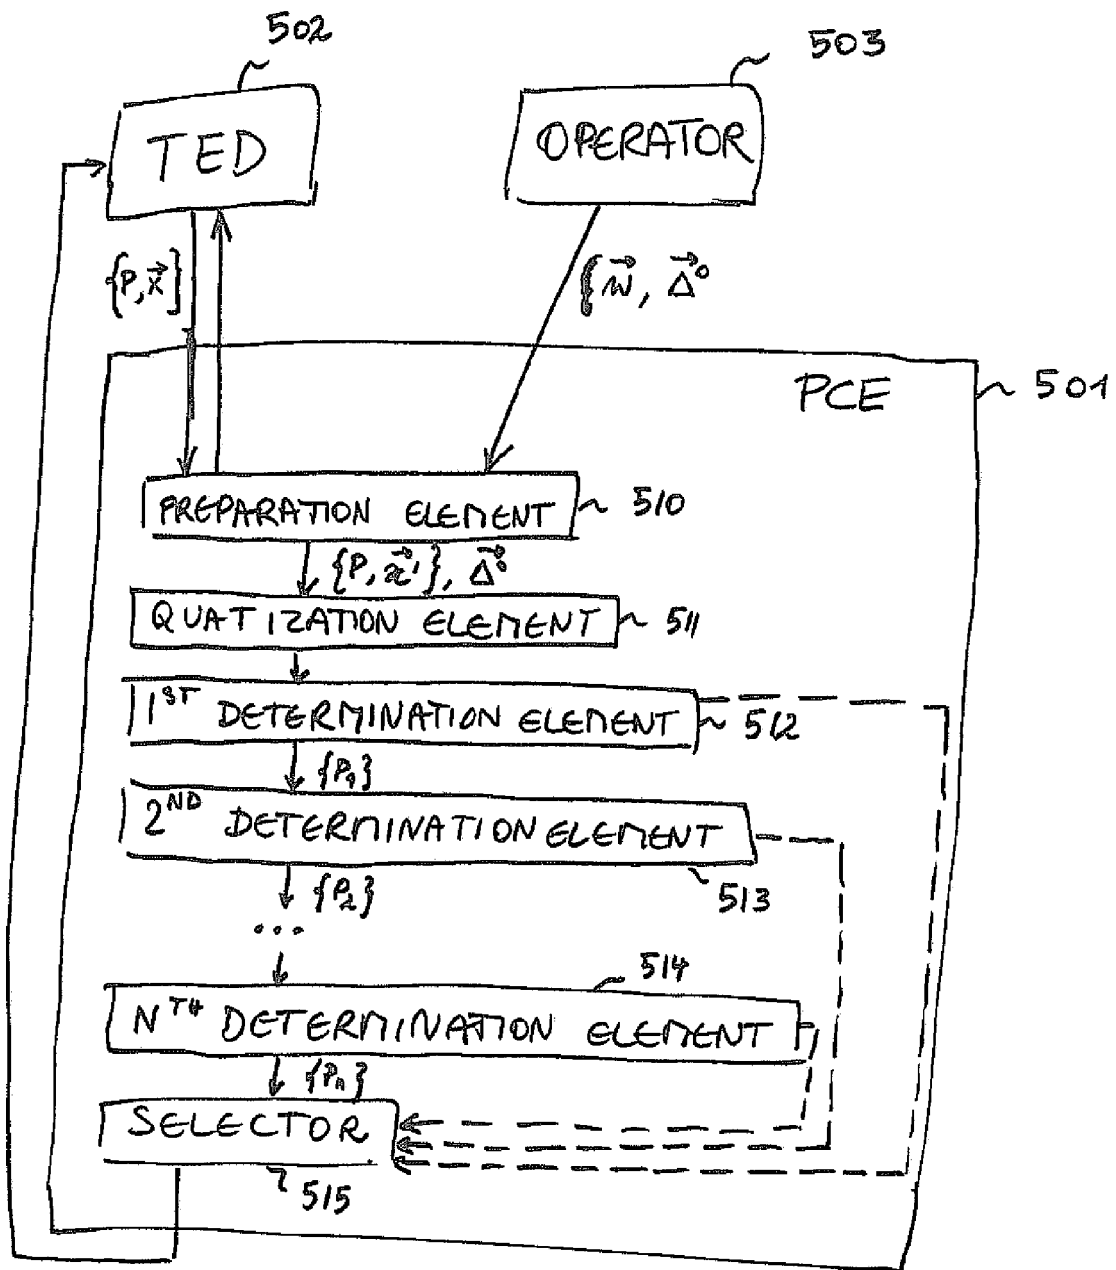 502
503
TED
OPERATOR
{P, x⃗}
{w⃗, Δ⃗⁰
PCE
501
PREPARATION ELEMENT
510
{P, x⃗'}, Δ⃗⁰
QUATIZATION ELEMENT
511
1ST DETERMINATION ELEMENT
512
{P₁}
2ND DETERMINATION ELEMENT
513
{P₂}
...
514
NTH DETERMINATION ELEMENT
{Pₙ}
SELECTOR
515